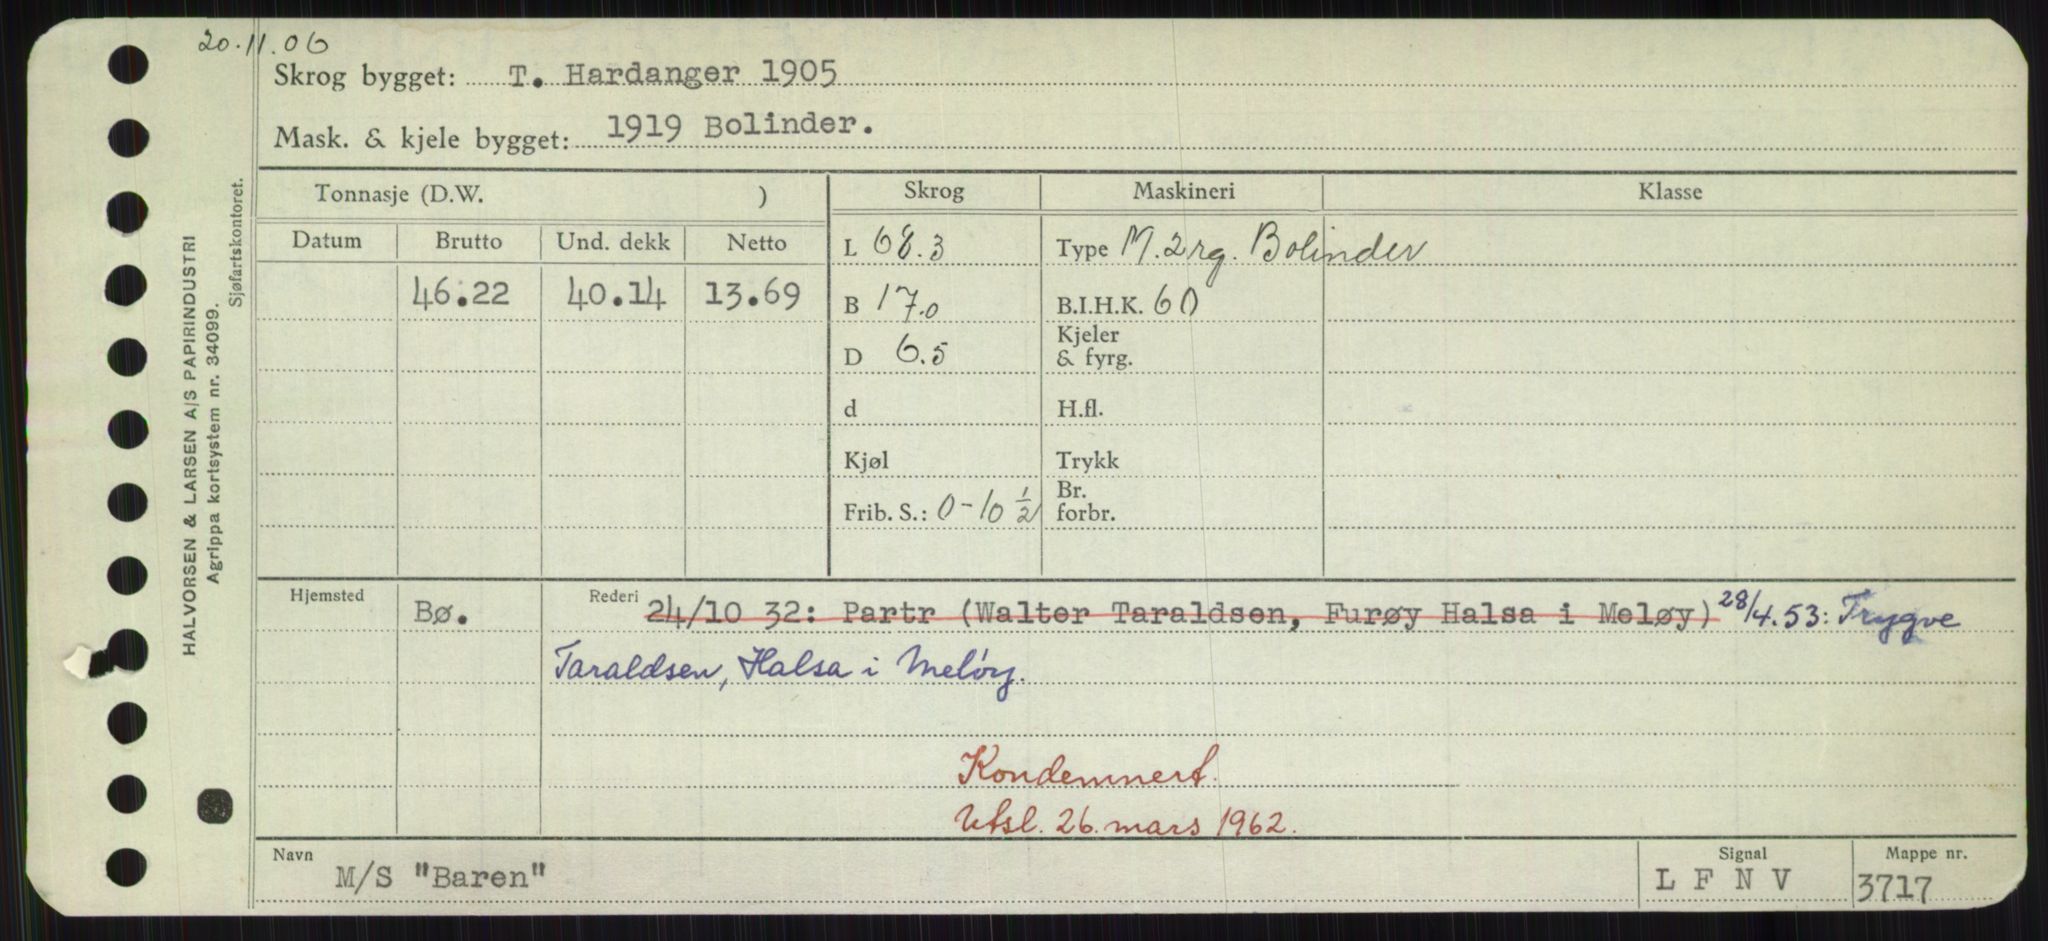 20.11.06
Skrog bygget: T. Hardanger 1905
Mask. & kjele bygget: 1919 Bolinder.
HALVORSEN & LARSEN A/S PAPIRINDUSTRI
Agrippa kortsystem nr. 34099.
Sjøfartskontoret.
Tonnasje (D.W. ) Skrog Maskineri Klasse
Datum Brutto Und. dekk Netto L 68.3 Type M. 2 rg. Bolinder
46.22 40.14 13.69 B 17.0 B.I.H.K. 60
D 6.5 Kjeler
& fyrg.
d H.fl.
Kjøl Trykk
Frib. S.: 0-10 ½ Br.
forbr.
Hjemsted Bø. Rederi 24/10 32: Partr (Walter Taraldsen, Furøy Halsa i Meløy) 28/4.53: Trygve
Taraldsen, Halsa i Meløy.
Kondemnert.
Utsl. 26. mars 1962.
Navn M/S "Baren" Signal L F N V Mappe nr. 3717